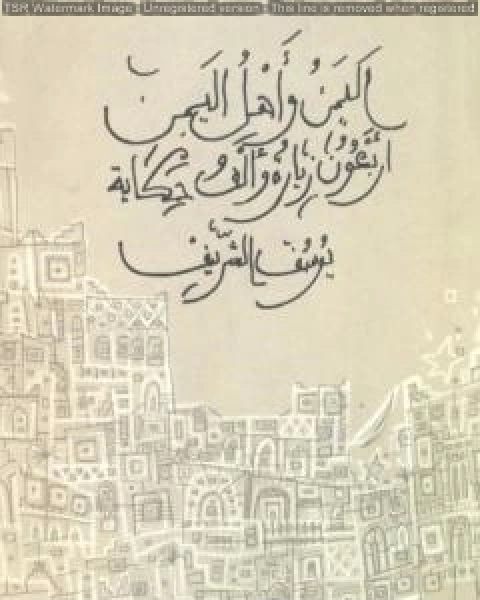 TSR Watermark Image - Unregistered version - This line is removed when registered
اليَمَنُ وَأَهْلُ اليَمَن
أَرْبَعُونَ زِيَارَة وَأَلْفُ حِكَاية
يُوسُف الشَّرِيف